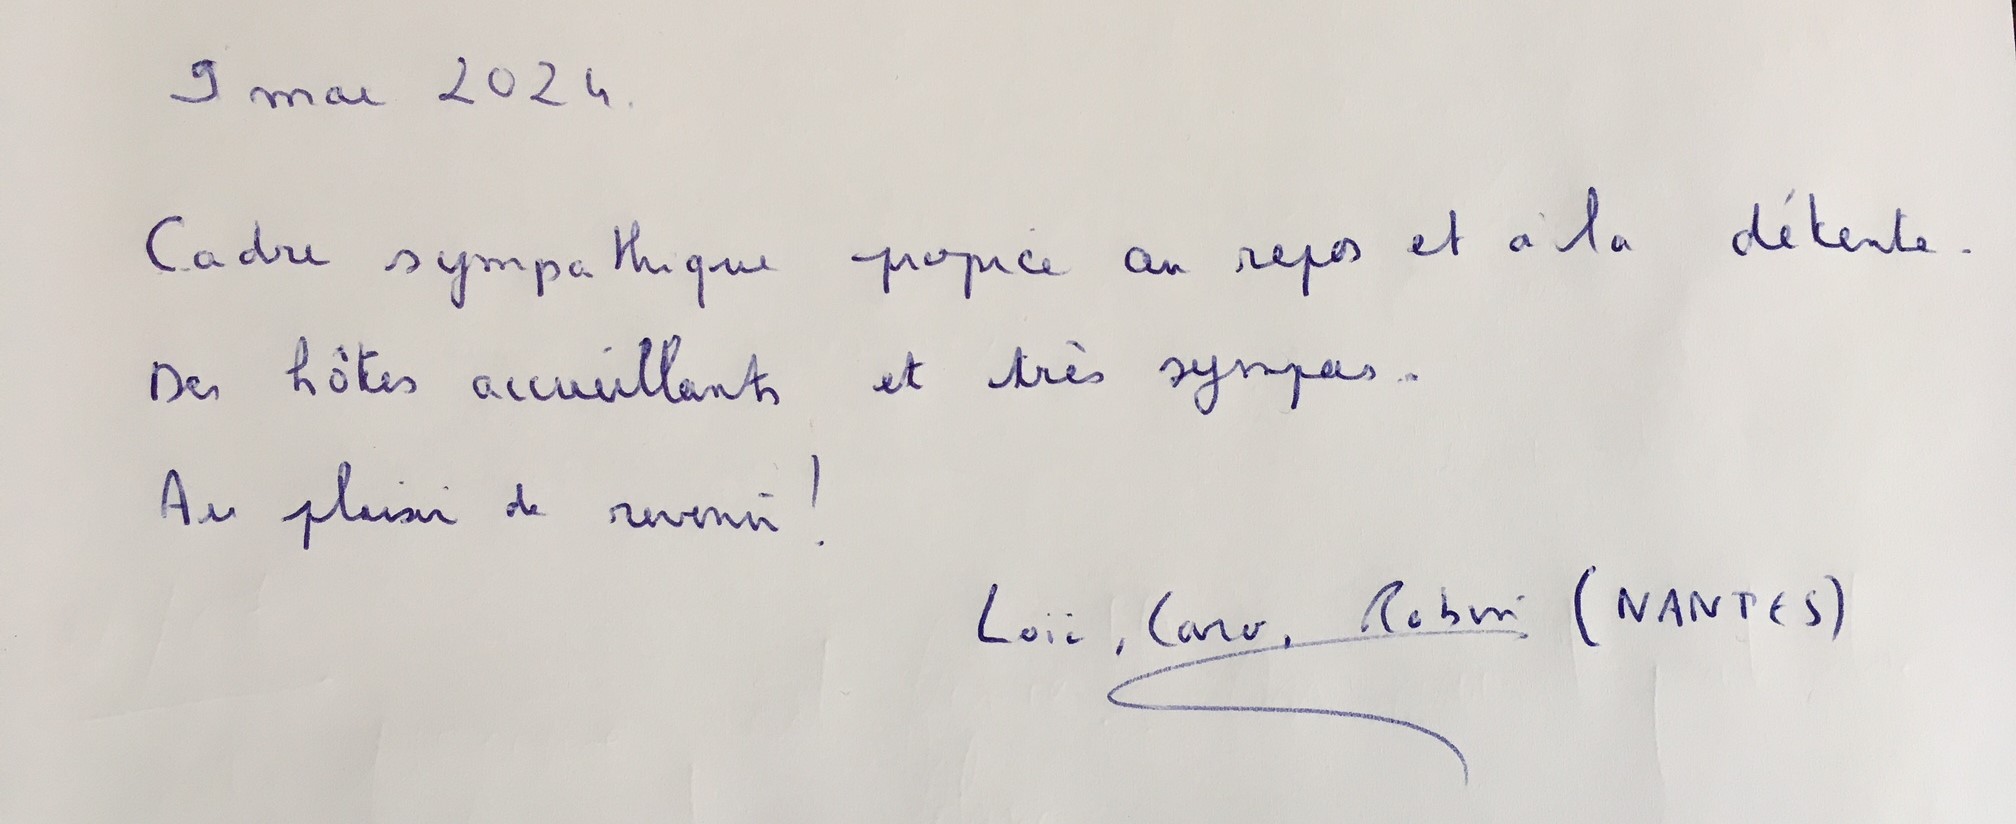 9 mai 2024.
Cadre sympathique propice au repos et à la détente.
Des hôtes accueillants et très sympas.
Au plaisir de revenir !
Loïc, Caro, Robin (NANTES)